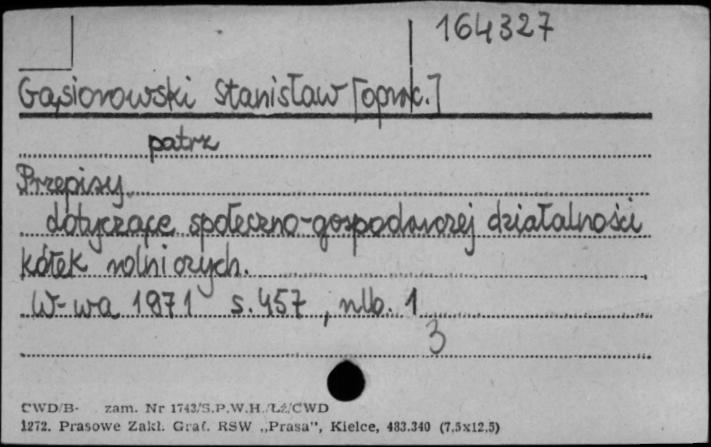 164327
Gąsiorowski Stanisław [oprac.]
patrz
Przepisy
dotyczące społeczno-gospodarczej działalności
kółek rolniczych.
W-wa 1971 s. 457, nlb. 1
3
CWD/B- zam. Nr 1743/S.P.W.H./Łż/CWD
1272. Prasowe Zakł. Graf. RSW „Prasa", Kielce, 483.340 (7,5x12,5)